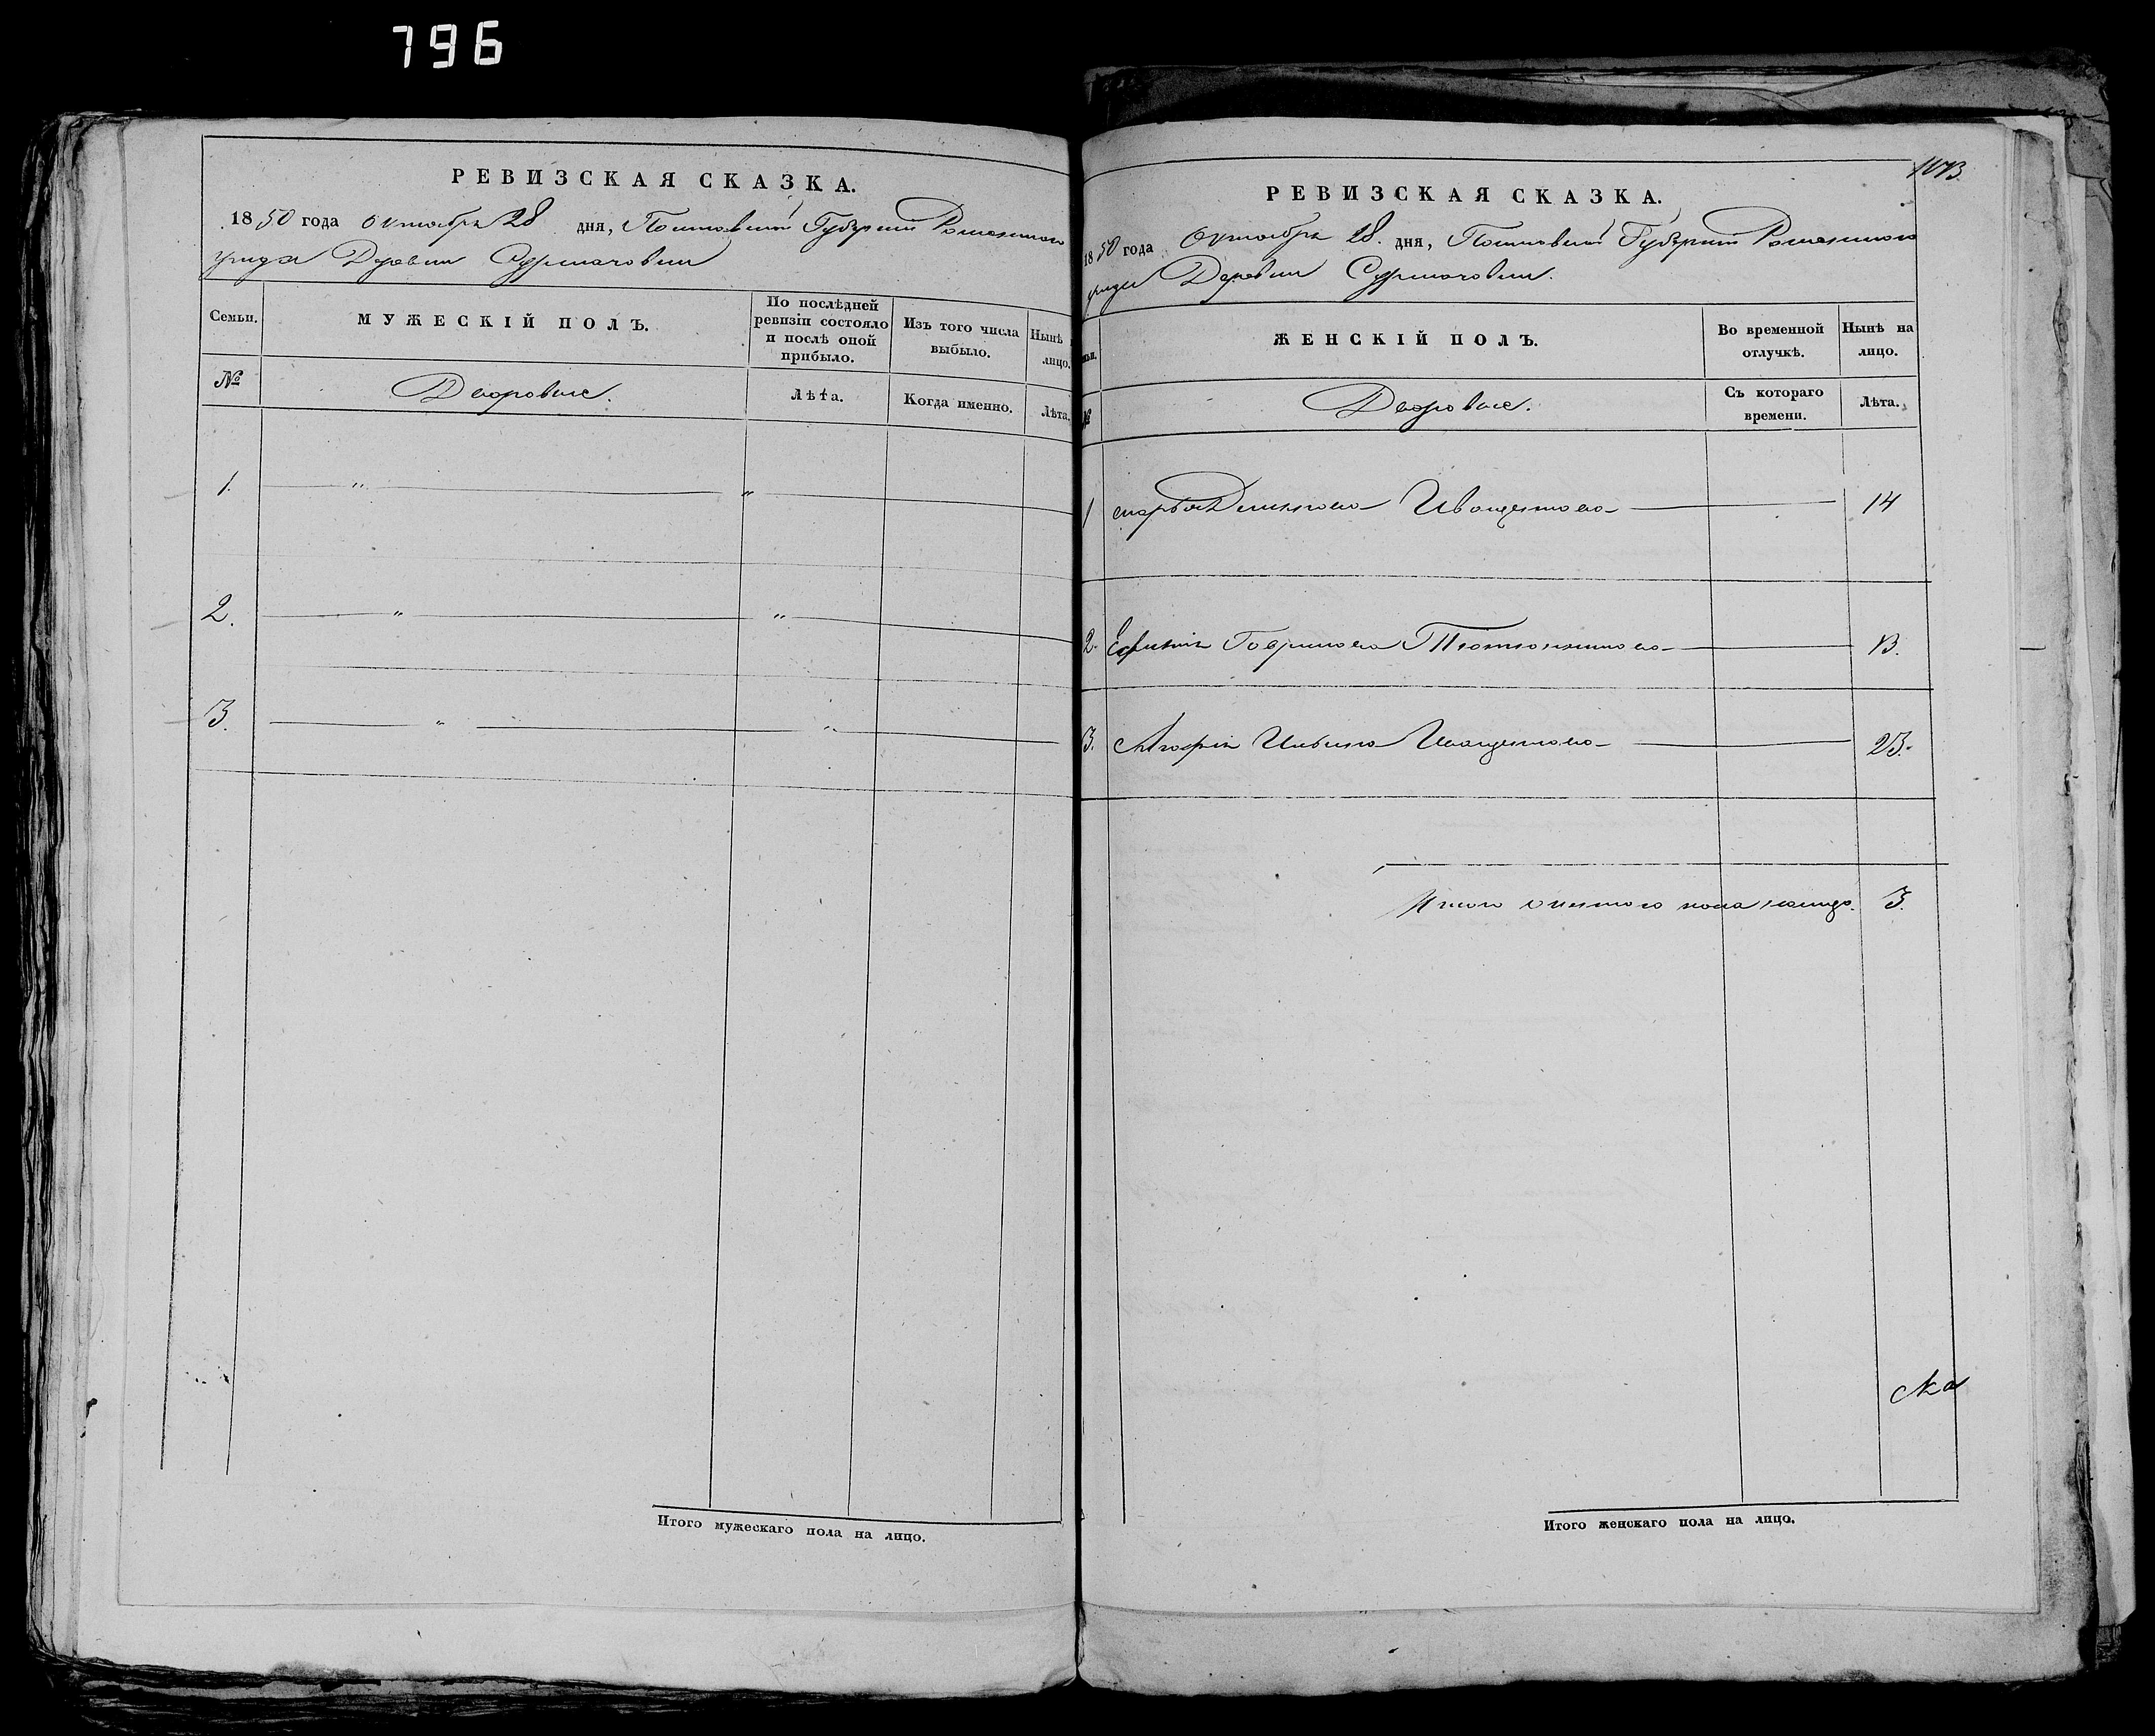 796
РЕВИЗСКАЯ СКАЗКА.
1850 года Октября 28 дня, Полтавской Губернии Роменского
уезда Деревни Сурмачовки
Семьи.
МУЖЕСКІЙ ПОЛЪ.
По послѣдней
ревизіи состояло
и послѣ оной
прибыло.
Изъ того числа
выбыло.
Нынѣ
лицо.
№
Дворовые.
Лѣта.
Когда именно.
Лѣта.
1.
2.
3.
Итого мужескаго пола на лицо.
1073
РЕВИЗСКАЯ СКАЗКА.
1850 года Октября 28. дня, Полтавской Губернии Роменского
уезда Деревни Сурмачовки.
ЖЕНСКІЙ ПОЛЪ.
Во временной
отлучкѣ.
Нынѣ на
лицо.
№
Дворовые.
Съ котораго
времени.
Лѣта.
1 Иващенкова 14
2. Гаврилова Тютюнникова 13.
3. Ильина Иващенкова 23.
Итого женского пола налицо. 3.
Итого женскаго пола на лицо.